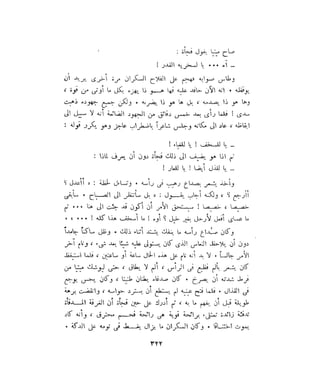 صاح ميتيا يقول فجأة :
ـ آه ٠٠٠ يا لسخرية القدر !
وطاش صوابه فهجم على الفلاح السكران مرة أخرى يريد أن
يوقظه ٠ انه الآن حاقد عليه فها هو ذا يهزه بكل ما أوتى من قوة ،
وها هو ذا يصدمه ، بل ها هو ذا يضربه ٠ ولكن جميع جهوده ذهبت
سدى ! فلما رأى بعد خمس دقائق من الجهود الضائعة أنه لا سبيل الى
ايقاظه ، عاد الى مكانه وجلس شاعراً باضطراب عاجز وهو يكرر قوله :
ـ يا للسخف ! يا للغباء !
ثم اذا هو يضيف الى ذلك فجأة دون أن يعرف لماذا :
ـ يا للذل أيضا ! يا للعار !
وأخذ يشعر بصداع رهيب فى رأسه ٠ وتساءل لحظة : « أأعدل ؟
أأرجع ؟ » ولكنه أجاب يقول : « بل سأنتظر الى الصباح ٠ سأبقى
خصيصا ، خصيصا ! سيستحق الأمر أن أكون قد جئت الى هنا ٠٠٠ ثم
ما عساى أفعل لأرحل بغير خيل ؟ أوه ! ما أسخف هذا كله ! ٠٠٠ » ٠
وكان صداع رأسه ما ينفك يشتد أثناء ذلك ٠ وظل ساكناً جامداً
دون أن يلاحظ النعاس الذى كان يستولى عليه شيئاً بعد شىء ، ونام آخر
الأمر جالساً ٠ لا بد أنه نام على هذه الحال ساعة أو ساعتين ، فلما استيقظ
كان يشعر بألم فظيع فى الرأس ، ألم لا يطاق ، حتى ليوشك ميتيا من
فرط شدته أن يصرخ ٠ كان صدغاه يطنان طنيناً ، وكان يحس بوجع
فى القذال ٠ فلما فتح عينيه لم يستطع أن يسترد حواسه ، وانقضت برهة
طويلة قبل أن يفهم ما به ، ثم أدرك على حين فجأة أن الغرفة المدفأة
تدفئة زائدة تمتلىء برائحة قوية هى رائحة فحم محترق ، وأنه كاد
يموت اختناقا ٠ وكان السكران ما يزال يغط فى نومه على الدكة ٠
٣٢٢